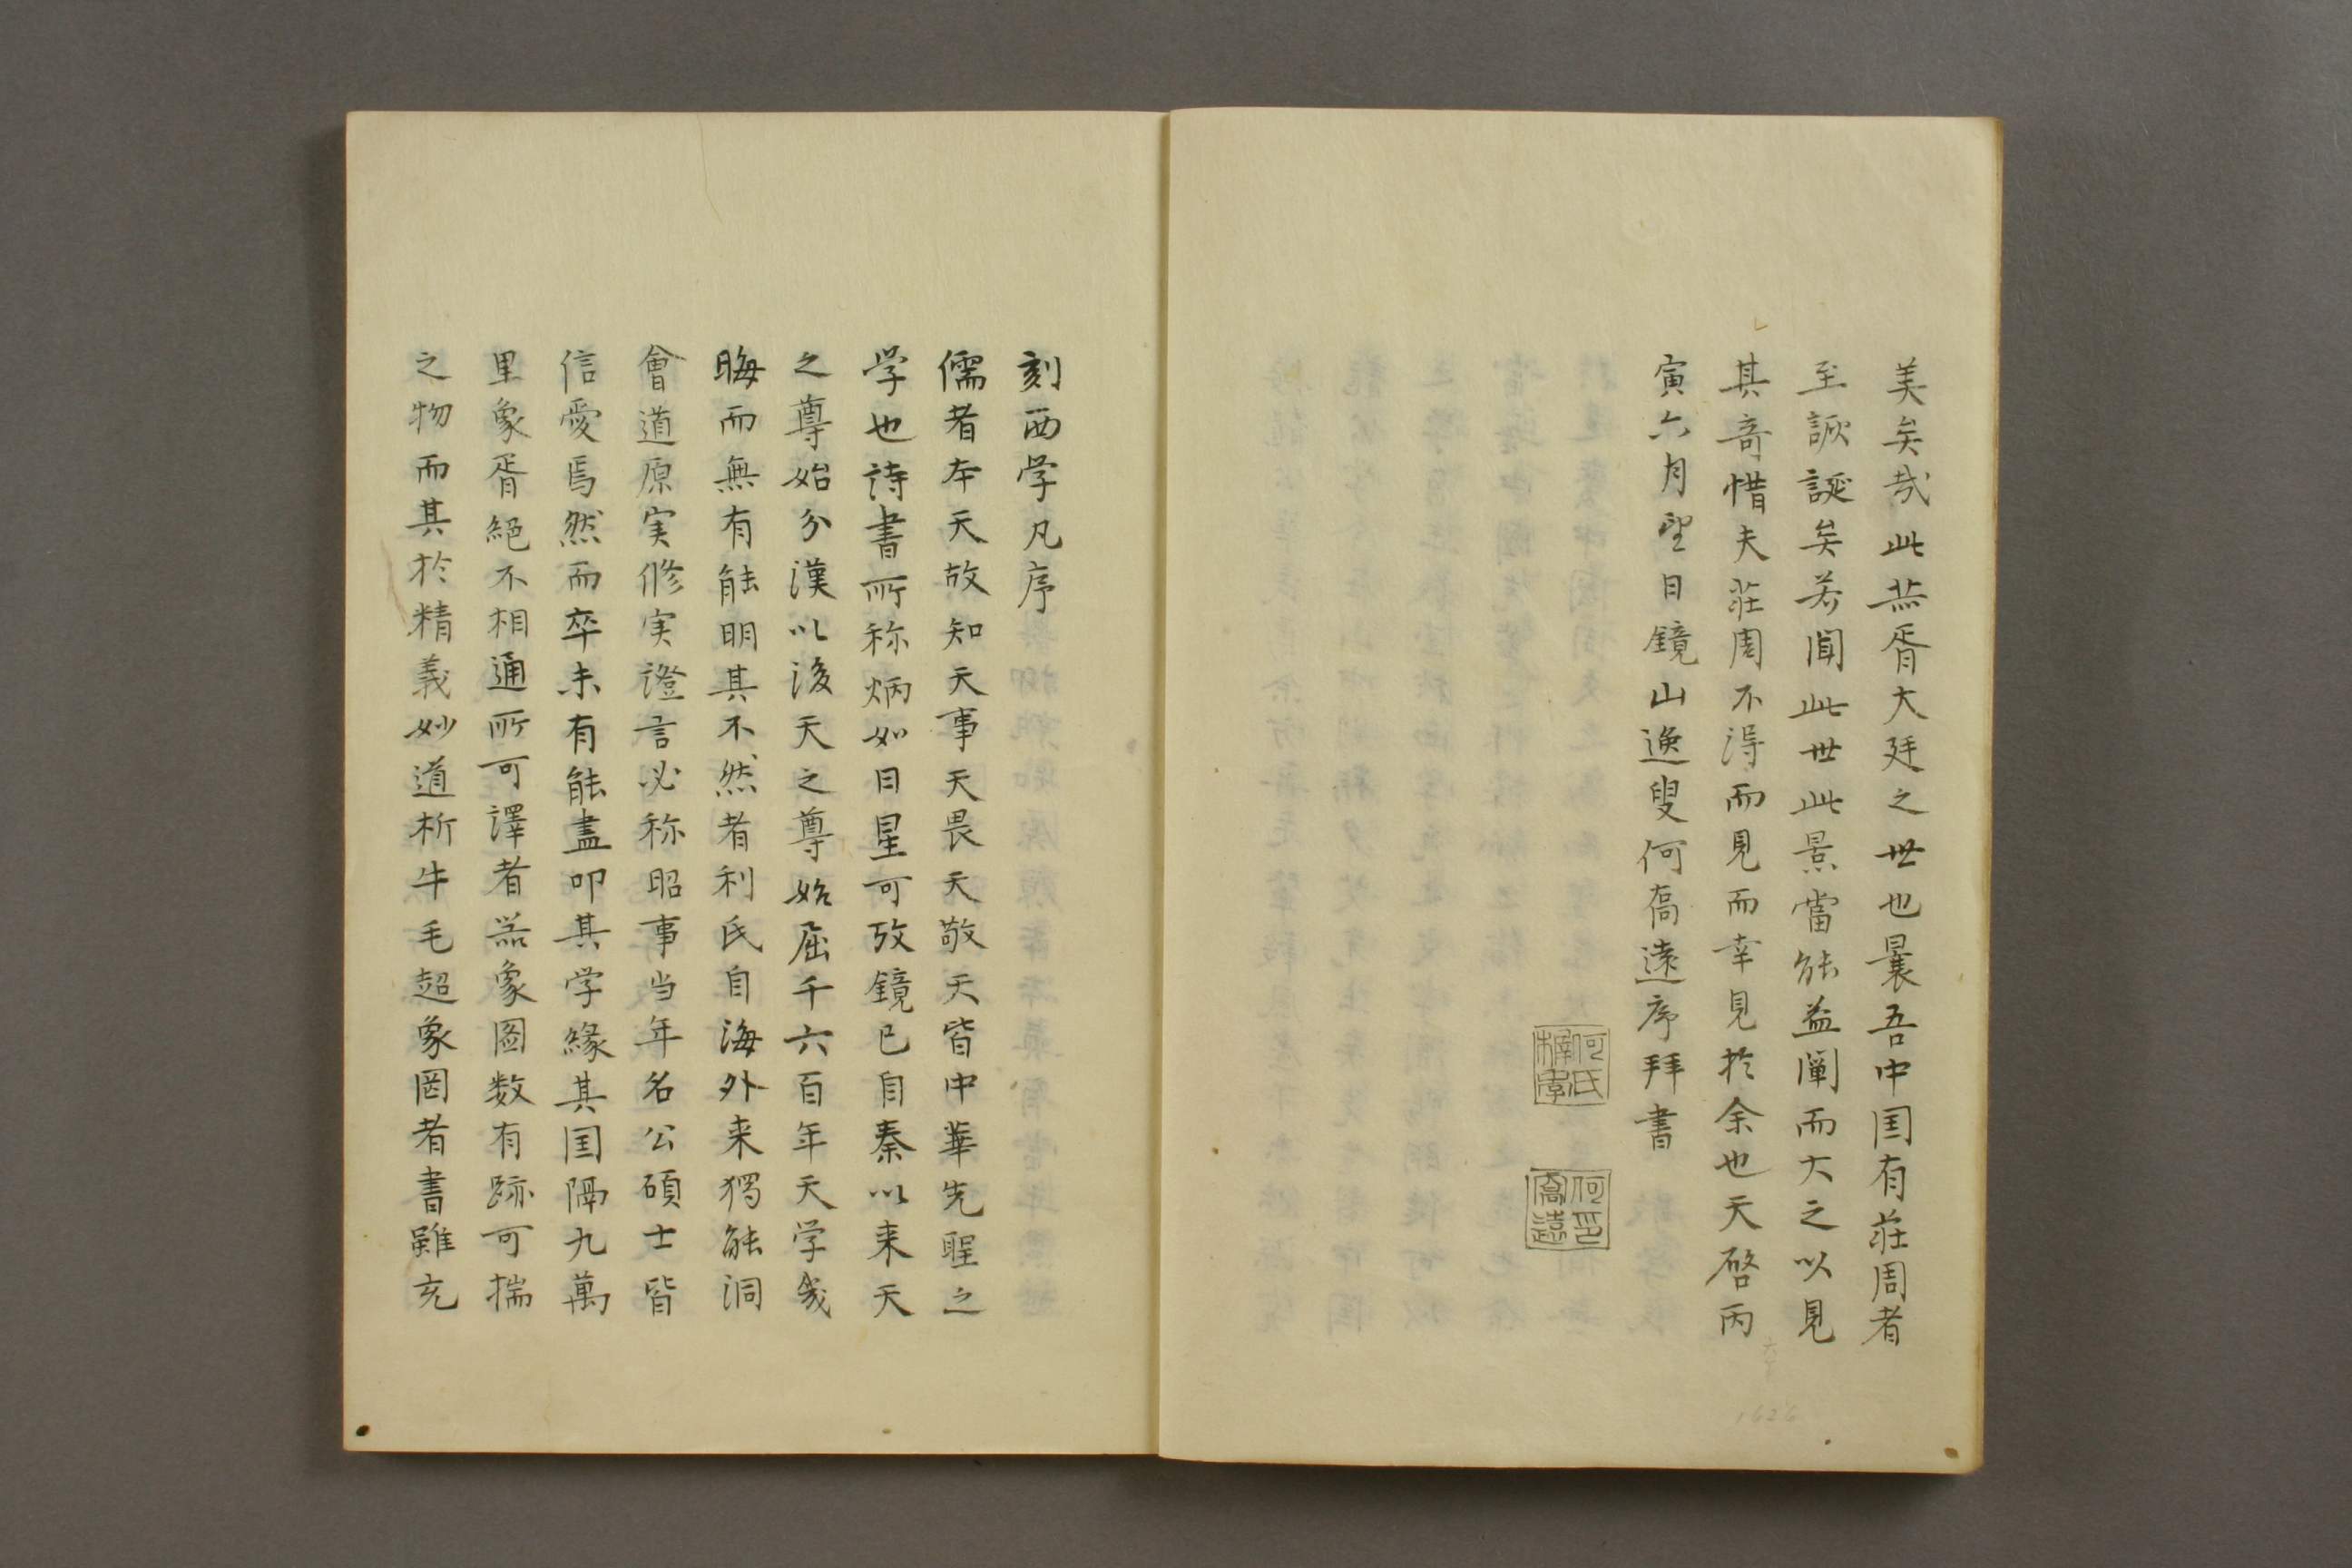 美矣哉此㷼胥大廷之世也曩吾中国有莊周者
至詼誕矣若聞此世此景當能益闡而大之以見
其奇惜夫莊周不淂而見而幸見於余也天啓丙
寅六月望日鏡山逸叟何喬遠序拜書
何氏
穉孝
何印
喬遠
1626
刻西学凡序
儒者本天故知天事天畏天敬天皆中華先聖之
学也詩書所称炳如日星可攷鏡已自秦以来天
之尊始分漢以後天之尊始屈千六百年天学幾
晦而無有能明其不然者利氏自海外来獨能洞
會道原実修実證言必称昭事当年名公碩士皆
信愛焉然而卒未有能盡叩其学緣其国隔九萬
里象胥絕不相通所可譯者噐象图数有跡可揣
之物而其於精義妙道析牛毛超象罔者書雖充